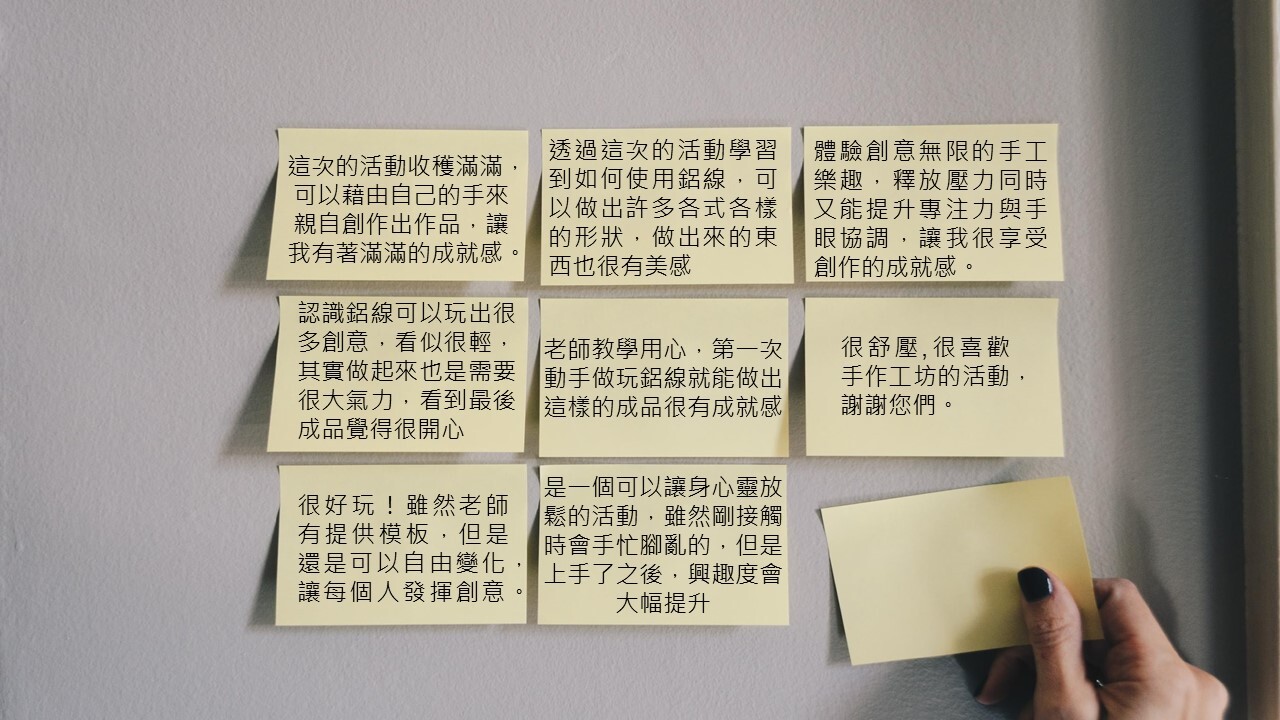 這次的活動收穫滿滿，
可以藉由自己的手來
親自創作出作品，讓
我有著滿滿的成就感。
透過這次的活動學習
到如何使用鋁線，可
以做出許多各式各樣
的形狀，做出來的東
西也很有美感
體驗創意無限的手工
樂趣，釋放壓力同時
又能提升專注力與手
眼協調，讓我很享受
創作的成就感。
認識鋁線可以玩出很
多創意，看似很輕，
其實做起來也是需要
很大氣力，看到最後
成品覺得很開心
老師教學用心，第一次
動手做玩鋁線就能做出
這樣的成品很有成就感
很舒壓,很喜歡
手作工坊的活動，
謝謝您們。
很好玩！雖然老師
有提供模板，但是
還是可以自由變化，
讓每個人發揮創意。
是一個可以讓身心靈放
鬆的活動，雖然剛接觸
時會手忙腳亂的，但是
上手了之後，興趣度會
大幅提升